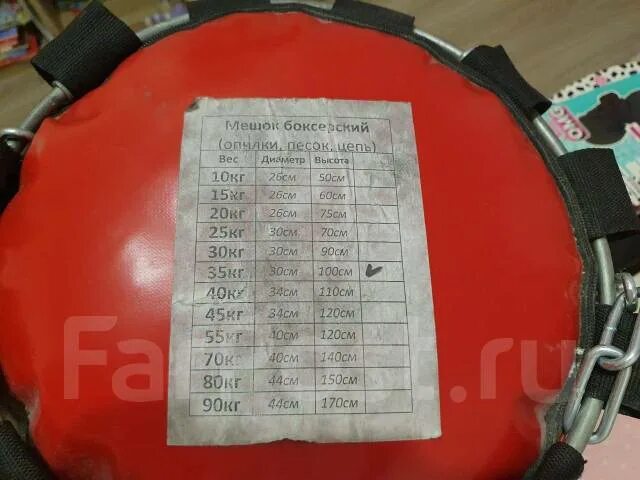 Мешок боксерский
(опилки, песок, цепь)
Вес Диаметр Высота
10кг 26см 50см
15кг 26см 60см
20кг 26см 75см
25кг 30см 70см
30кг 30см 90см
35кг 30см 100см ✓
40кг 34см 110см
45кг 34см 120см
55кг 40см 120см
70кг 40см 140см
80кг 44см 150см
90кг 44см 170см
OMG